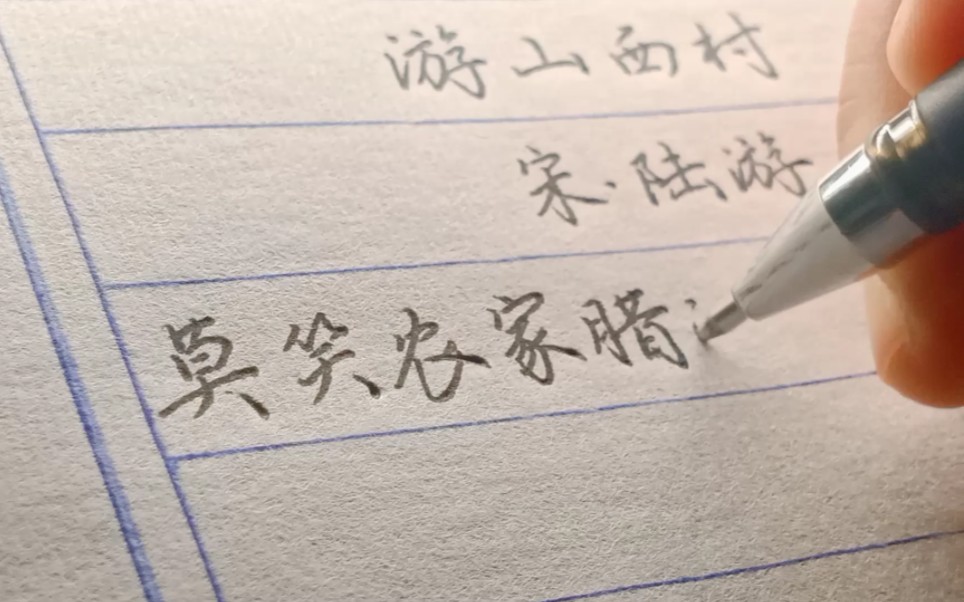 游山西村
宋·陆游
莫笑农家腊